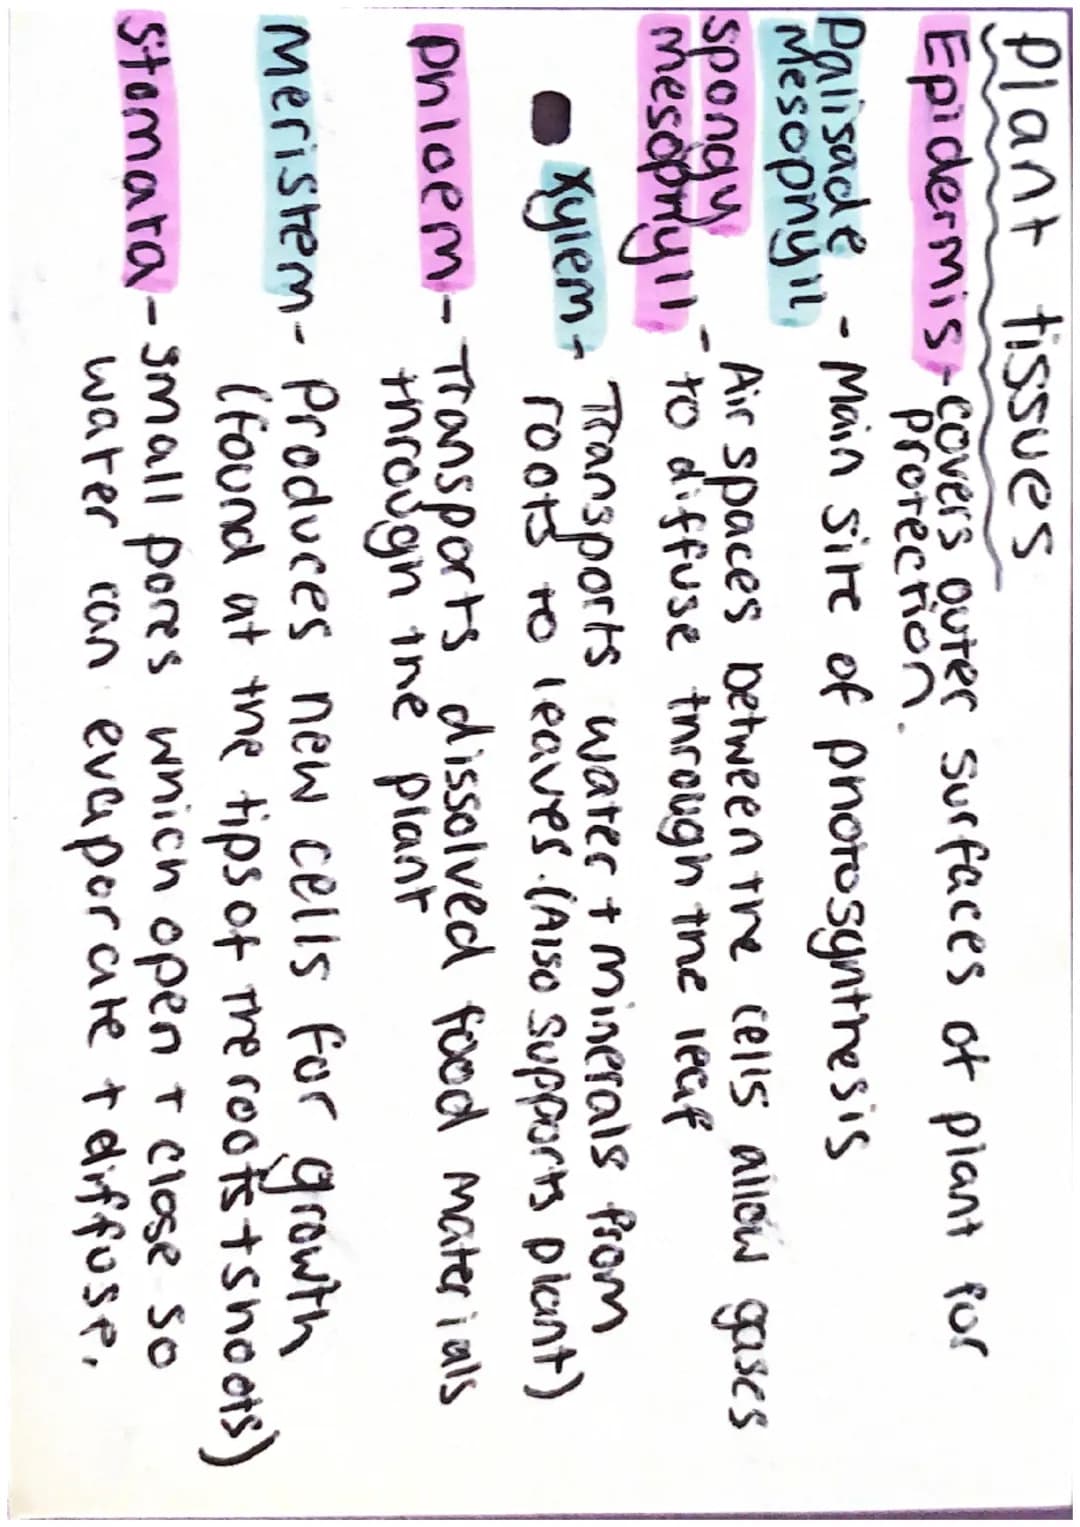 Plant tissues
Epidermis - covers outer surfaces of plant for
protection.
Palisade
Mesophyll - Main site of photosynthesis
spongy
mesophyll - Air spaces between the cells allow gases
to diffuse through the leaf
Xylem - Transports water + minerals from
roots to leaves. (Also supports plant)
Phloem - Transports dissolved food materials
through the plant
Meristem - Produces new cells for growth
(found at the tips of the roots + shoots)
Stomata - small pores which open + close so
water can evaporate + diffuse.